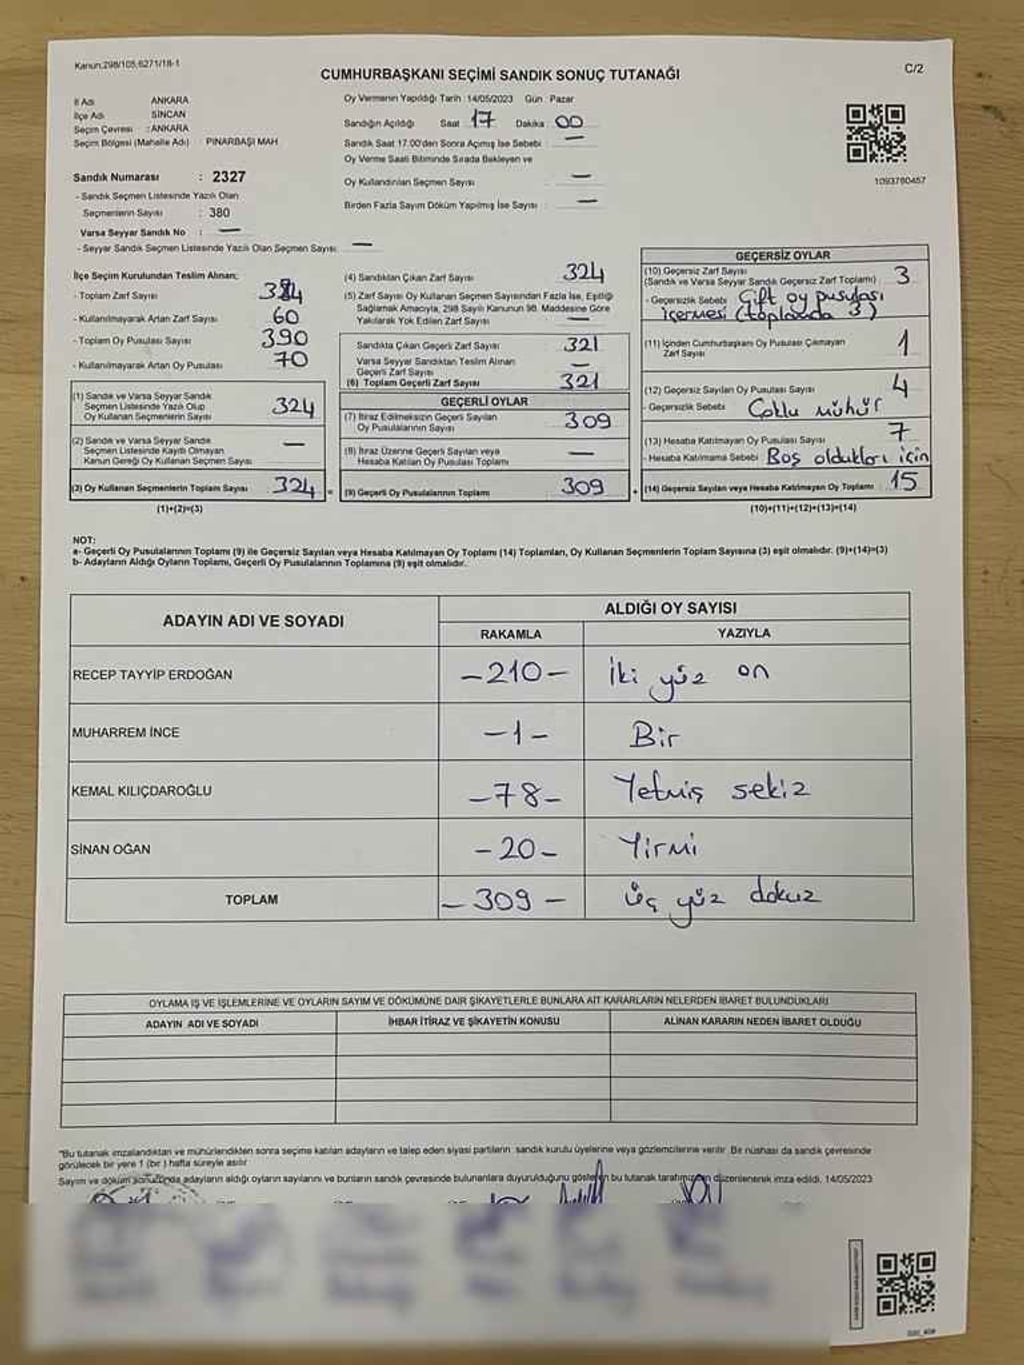 Kanun:298/105,6271/18-1
C/2
CUMHURBAŞKANI SEÇİMİ SANDIK SONUÇ TUTANAĞI
İl Adı ANKARA
İlçe Adı SİNCAN
Seçim Çevresi : ANKARA
Seçim Bölgesi (Mahalle Adı) : PINARBAŞI MAH
Sandık Numarası : 2327
- Sandık Seçmen Listesinde Yazılı Olan
Seçmenlerin Sayısı : 380
Varsa Seyyar Sandık No : —
- Seyyar Sandık Seçmen Listesinde Yazılı Olan Seçmen Sayısı: —
Oy Vermenin Yapıldığı Tarih : 14/05/2023 Gün : Pazar
Sandığın Açıldığı Saat 17 Dakika : 00
Sandık Saat 17.00'den Sonra Açılmış İse Sebebi : —
Oy Verme Saati Bitiminde Sırada Bekleyen ve
Oy Kullandırılan Seçmen Sayısı —
Birden Fazla Sayım Döküm Yapılmış İse Sayısı : —
1093760457
İlçe Seçim Kurulundan Teslim Alınan;
- Toplam Zarf Sayısı
- Kullanılmayarak Artan Zarf Sayısı 60
- Toplam Oy Pusulası Sayısı 390
- Kullanılmayarak Artan Oy Pusulası 70
(1) Sandık ve Varsa Seyyar Sandık
Seçmen Listesinde Yazılı Olup
Oy Kullanan Seçmenlerin Sayısı 324
(2) Sandık ve Varsa Seyyar Sandık
Seçmen Listesinde Kayıtlı Olmayan
Kanun Gereği Oy Kullanan Seçmen Sayısı —
(3) Oy Kullanan Seçmenlerin Toplam Sayısı 324 =
(1)+(2)=(3)
(4) Sandıktan Çıkan Zarf Sayısı 324
(5) Zarf Sayısı Oy Kullanan Seçmen Sayısından Fazla İse, Eşitliği
Sağlamak Amacıyla, 298 Sayılı Kanunun 98. Maddesine Göre
Yakılarak Yok Edilen Zarf Sayısı —
Sandıkta Çıkan Geçerli Zarf Sayısı 321
Varsa Seyyar Sandıktan Teslim Alınan
Geçerli Zarf Sayısı —
(6) Toplam Geçerli Zarf Sayısı 321
GEÇERLİ OYLAR
(7) İtiraz Edilmeksizin Geçerli Sayılan
Oy Pusulalarının Sayısı 309
(8) İtiraz Üzerine Geçerli Sayılan veya
Hesaba Katılan Oy Pusulası Toplamı —
(9) Geçerli Oy Pusulalarının Toplamı 309 +
GEÇERSİZ OYLAR
(10) Geçersiz Zarf Sayısı 3
(Sandık ve Varsa Seyyar Sandık Geçersiz Zarf Toplamı)
- Geçersizlik Sebebi Çift oy pusulası
içermesi (toplamda 3)
(11) İçinden Cumhurbaşkanı Oy Pusulası Çıkmayan
Zarf Sayısı 1
(12) Geçersiz Sayılan Oy Pusulası Sayısı 4
- Geçersizlik Sebebi Çoklu mühür
(13) Hesaba Katılmayan Oy Pusulası Sayısı 7
- Hesaba Katılmama Sebebi Boş oldukları için
(14) Geçersiz Sayılan veya Hesaba Katılmayan Oy Toplamı 15
(10)+(11)+(12)+(13)=(14)
NOT:
a- Geçerli Oy Pusulalarının Toplamı (9) ile Geçersiz Sayılan veya Hesaba Katılmayan Oy Toplamı (14) Toplamları, Oy Kullanan Seçmenlerin Toplam Sayısına (3) eşit olmalıdır. (9)+(14)=(3)
b- Adayların Aldığı Oyların Toplamı, Geçerli Oy Pusulalarının Toplamına (9) eşit olmalıdır.
ADAYIN ADI VE SOYADI
ALDIĞI OY SAYISI
RAKAMLA YAZIYLA
RECEP TAYYİP ERDOĞAN -210- İki yüz on
MUHARREM İNCE -1- Bir
KEMAL KILIÇDAROĞLU -78- Yetmiş sekiz
SİNAN OĞAN -20- Yirmi
TOPLAM -309- üç yüz dokuz
OYLAMA İŞ VE İŞLEMLERİNE VE OYLARIN SAYIM VE DÖKÜMÜNE DAİR ŞİKAYETLERLE BUNLARA AİT KARARLARIN NELERDEN İBARET BULUNDUKLARI
ADAYIN ADI VE SOYADI İHBAR İTİRAZ VE ŞİKAYETİN KONUSU ALINAN KARARIN NEDEN İBARET OLDUĞU
"Bu tutanak imzalandıktan ve mühürlendikten sonra seçime katılan adayların ve talep eden siyasi partilerin sandık kurulu üyelerine veya gözlemcilerine verilir. Bir nüshası da sandık çevresinde
görülecek bir yere 1 (bir) hafta süreyle asılır
Sayım ve döküm sonucunda adayların aldığı oyların sayılarını ve bunların sandık çevresinde bulunanlara duyurulduğunu gösteren bu tutanak tarafımızdan düzenlenerek imza edildi. 14/05/2023